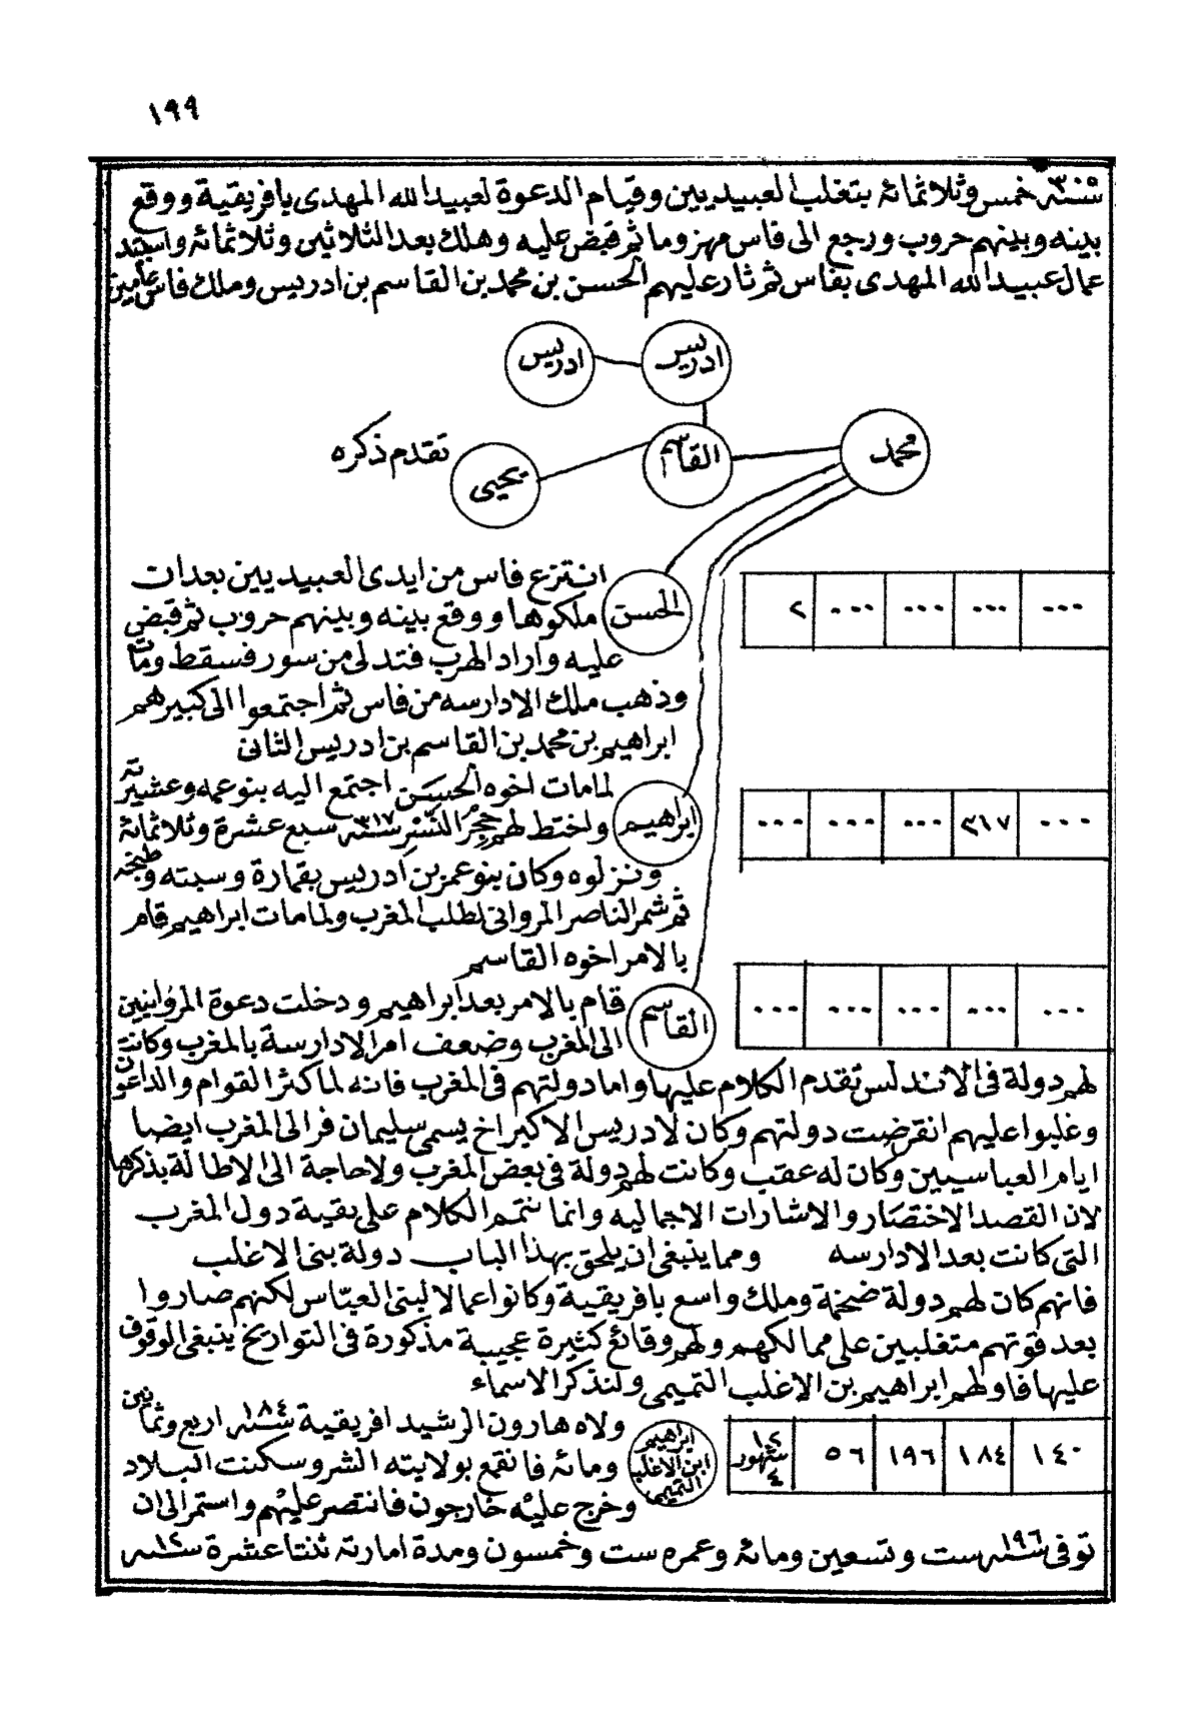 ١٩٩
سنة ٣٠٥ خمس وثلاثمائة بتغلب العبيديين وقيام الدعوة لعبيد الله المهدى بافريقية ووقع
بينه وبينهم حروب ورجع الى فاس مهزوما ثم قبض عليه وهلك بعد الثلاثين وثلاثمائة واستبد
عمال عبيد الله المهدى بفاس ثم ثار عليهم الحسن بن محمد بن القاسم بن ادريس وملك فاس عامين
ادريس ادريس
محمد القاسم يحيى تقدم ذكره
الحسن انتزع فاس من ايدى العبيديين بعد ان
ملكوها ووقع بينه وبينهم حروب ثم قبض
٠٠٠ ٠٠٠ ٠٠٠ ٠٠٠ ٢
عليه واراد الهرب فتدلى من سور فسقط ومات
وذهب ملك الادارسه من فاس ثم اجتمعوا الى كبيرهم
ابراهيم بن محمد بن القاسم بن ادريس الثانى
لما مات اخوه الحسن اجتمع اليه بنو عمه وعشيرته
ابراهيم واختط لهم حجر النسر سنة ٣١٧ سبع عشرة وثلاثمائة
٠٠٠ ٣١٧ ٠٠٠ ٠٠٠ ٠٠٠
ونزلوه وكان بنو عمر بن ادريس بغمارة وسبته وطنجه
ثم شمر الناصر المروانى لطلب المغرب ولما مات ابراهيم قام
بالامر اخوه القاسم
القاسم قام بالامر بعد ابراهيم ودخلت دعوة المروانيين
٠٠٠ ٠٠٠ ٠٠٠ ٠٠٠ ٠٠٠
الى المغرب وضعف امر الادارسة بالمغرب وكانت
لهم دولة فى الاندلس تقدم الكلام عليها واما دولتهم فى المغرب فانه لما كثر القوام والداعون
وغلبوا عليهم انقرضت دولتهم وكان لادريس الاكبر اخ يسمى سليمان فر الى المغرب ايضا
ايام العباسيين وكان له عقب وكانت لهم دولة فى بعض المغرب ولا حاجة الى الاطالة بذكرها
لان القصد الاختصار والاشارات الاجماليه وانما نتمم الكلام على بقية دول المغرب
التى كانت بعد الادارسه ومما ينبغى ان يلحق بهذا الباب دولة بنى الاغلب
فانهم كان لهم دولة ضخمة وملك واسع بافريقية وكانوا عمالا لبنى العباس لكنهم صاروا
بعد قوتهم متغلبين على ممالكهم ولهم وقائع كثيرة عجيبة مذكورة فى التواريخ ينبغى الوقوف
عليها فاولهم ابراهيم بن الاغلب التميمى ولنذكر الاسماء
ابراهيم ابن الاغلب التميمى ولاه هارون الرشيد افريقية سنة ١٨٤ اربع وثمانين
١٤٠ ١٨٤ ١٩٦ ٥٦ ١٢ شهور ٤
ومائه فانقمع بولايته الشر وسكنت البلاد
وخرج عليه خارجون فانتصر عليهم واستمر الى ان
توفى سنة ١٩٦ ست وتسعين ومائه وعمره ست وخمسون ومدة امارته ثنتا عشرة سنه ١٢